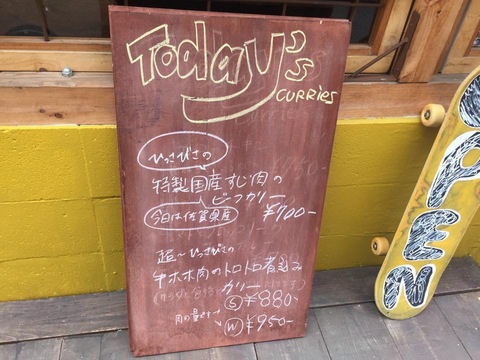 Today's
CURRIES
ひっさびさの
特製国産すじ肉の
ビーフカリー
今日は佐賀県産
¥700-
超〜ひっさびさの
牛ホホ肉のトロトロ煮込み
カリー
Ⓢ¥880-
肉の量です→
Ⓦ¥950-
OPEN